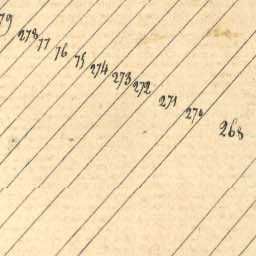 79 278 77 76 75 274 273 272 271 270 268